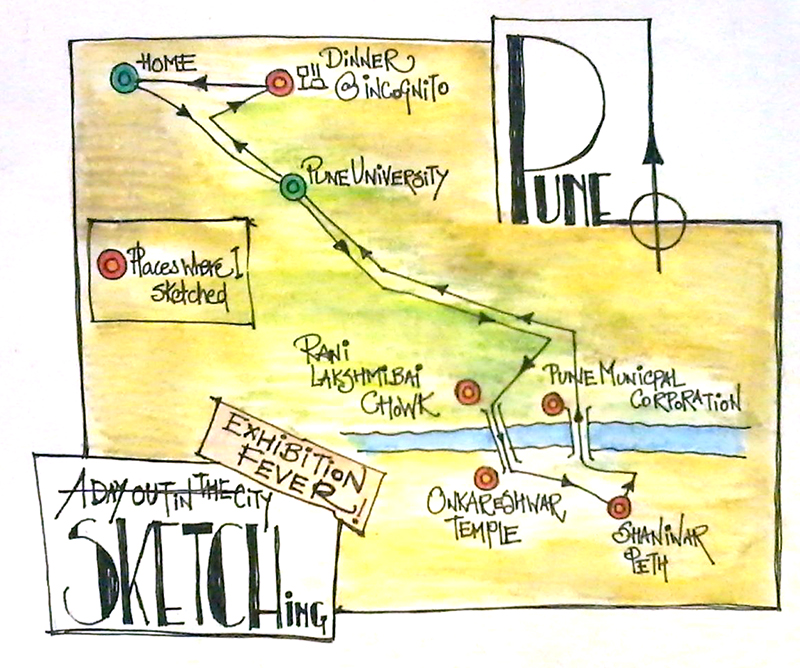 HOME
DINNER
@ INCOGNITO
PUNE
PUNE UNIVERSITY
Places where I
sketched
RANI
LAKSHMIBAI
CHOWK
PUNE MUNICPAL
CORPORATION
EXHIBITION
FEVER!
ONKARESHWAR
TEMPLE
SHANIWAR
PETH
A DAY OUT IN THE CITY
SKETCHING